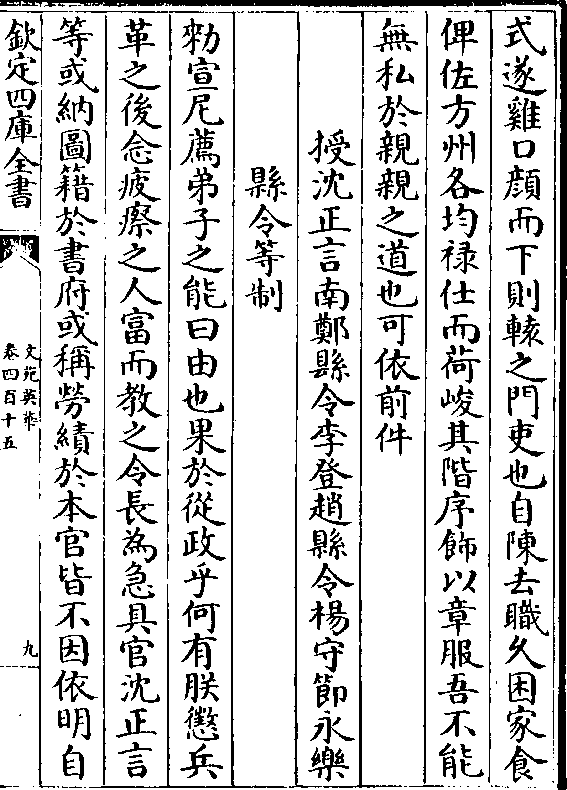 式遂雞口顔而下則轅之門吏也自陳去職久困家食
俾佐方州各均禄仕而荷峻其階序飾以章服吾不能
無私於親親之道也可依前件
授沈正言南鄭縣令李登趙縣令楊守節永樂
縣令等制
勑宣尼薦弟子之能曰由也果於從政乎何有朕懲兵
革之後念疲瘵之人富而教之令長為急具官沈正言
等或納圖籍於書府或稱勞績於本官皆不因依明自
欽定四庫全書
文苑英華
卷四百十五
九